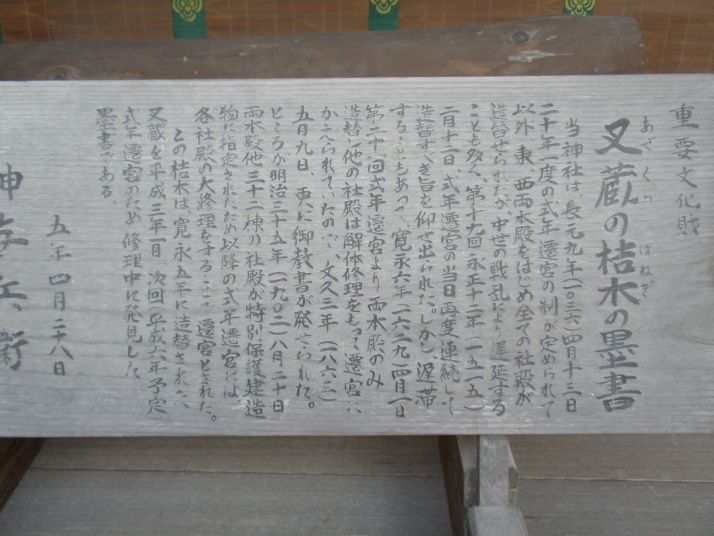 重要文化財
又蔵の桔木の墨書
あぜくら
はねぎ
当神社は長元九年(一〇三六)四月十三日
二十年一度の式年遷宮の制が定められて
以外 東、西両本殿をはじめ全ての社殿が
造替せられたが中世の戦乱により遅延する
ことも多く、第十九回永正十二年(一五一五)
二月十二日、式年遷宮の当日再度連続して
造替すべき旨を仰せ出られた。しかし遅滞
することもあって、寛永六年(一六二九)四月一日
第二十一回式年遷宮より両本殿のみ
造替し他の社殿は解体修理をもって遷宮に
かえられていたのが、文久三年(一八六三)
五月九日、更に御教書が発せられた。
ところが明治三十五年(一九〇二)八月二十日
両本殿他三十二棟の社殿が特別保護建造
物に指定されたため以降の式年遷宮には
各社殿の大修理をすることで遷宮とされた。
この桔木は寛永五年に造替された
又蔵を平成三年一月、次回(平成六年予定)
式年遷宮のため修理中に発見した
墨書である。
五年四月二十八日